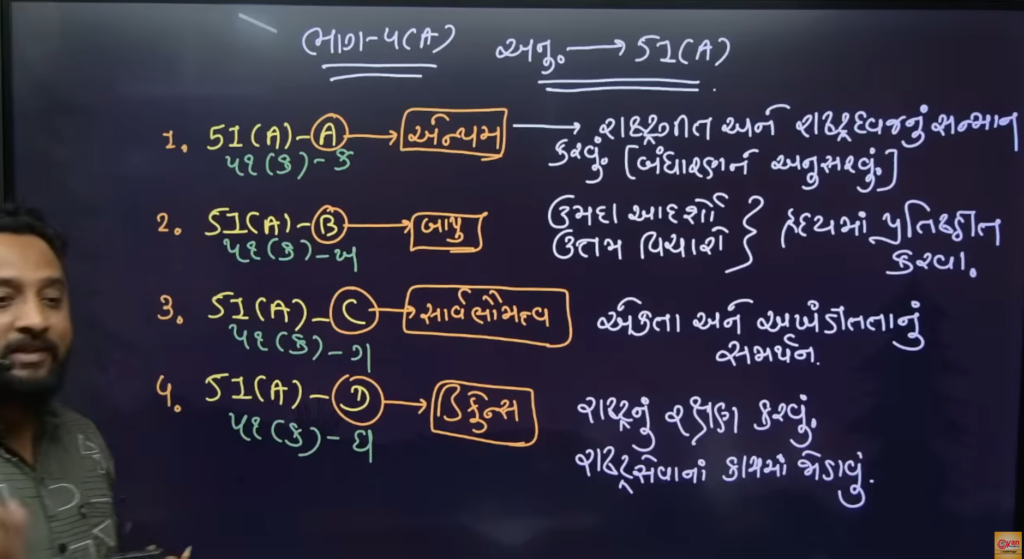 ભાગ-૫(A) અનુ. → 51(A)
1. 51(A)-A → એન્થમ → રાષ્ટ્રગીત અને રાષ્ટ્રધ્વજનું સન્માન
૫૧(ક)-ક કરવું. [બંધારણને અનુસરવું.]
2. 51(A)-B → બાપુ ઉમદા આદર્શો } હૃદયમાં પ્રતિષ્ઠીત
૫૧(ક)-ખ ઉત્તમ વિચારો કરવા.
3. 51(A)-C → સાર્વભૌમત્વ એકતા અને અખંડીતતાનું
૫૧(ક)-ગ સમર્થન.
4. 51(A)-D → ડિફેન્સ રાષ્ટ્રનું રક્ષણ કરવું.
૫૧(ક)-ઘ રાષ્ટ્રસેવાનાં કાર્યમાં જોડાવું.